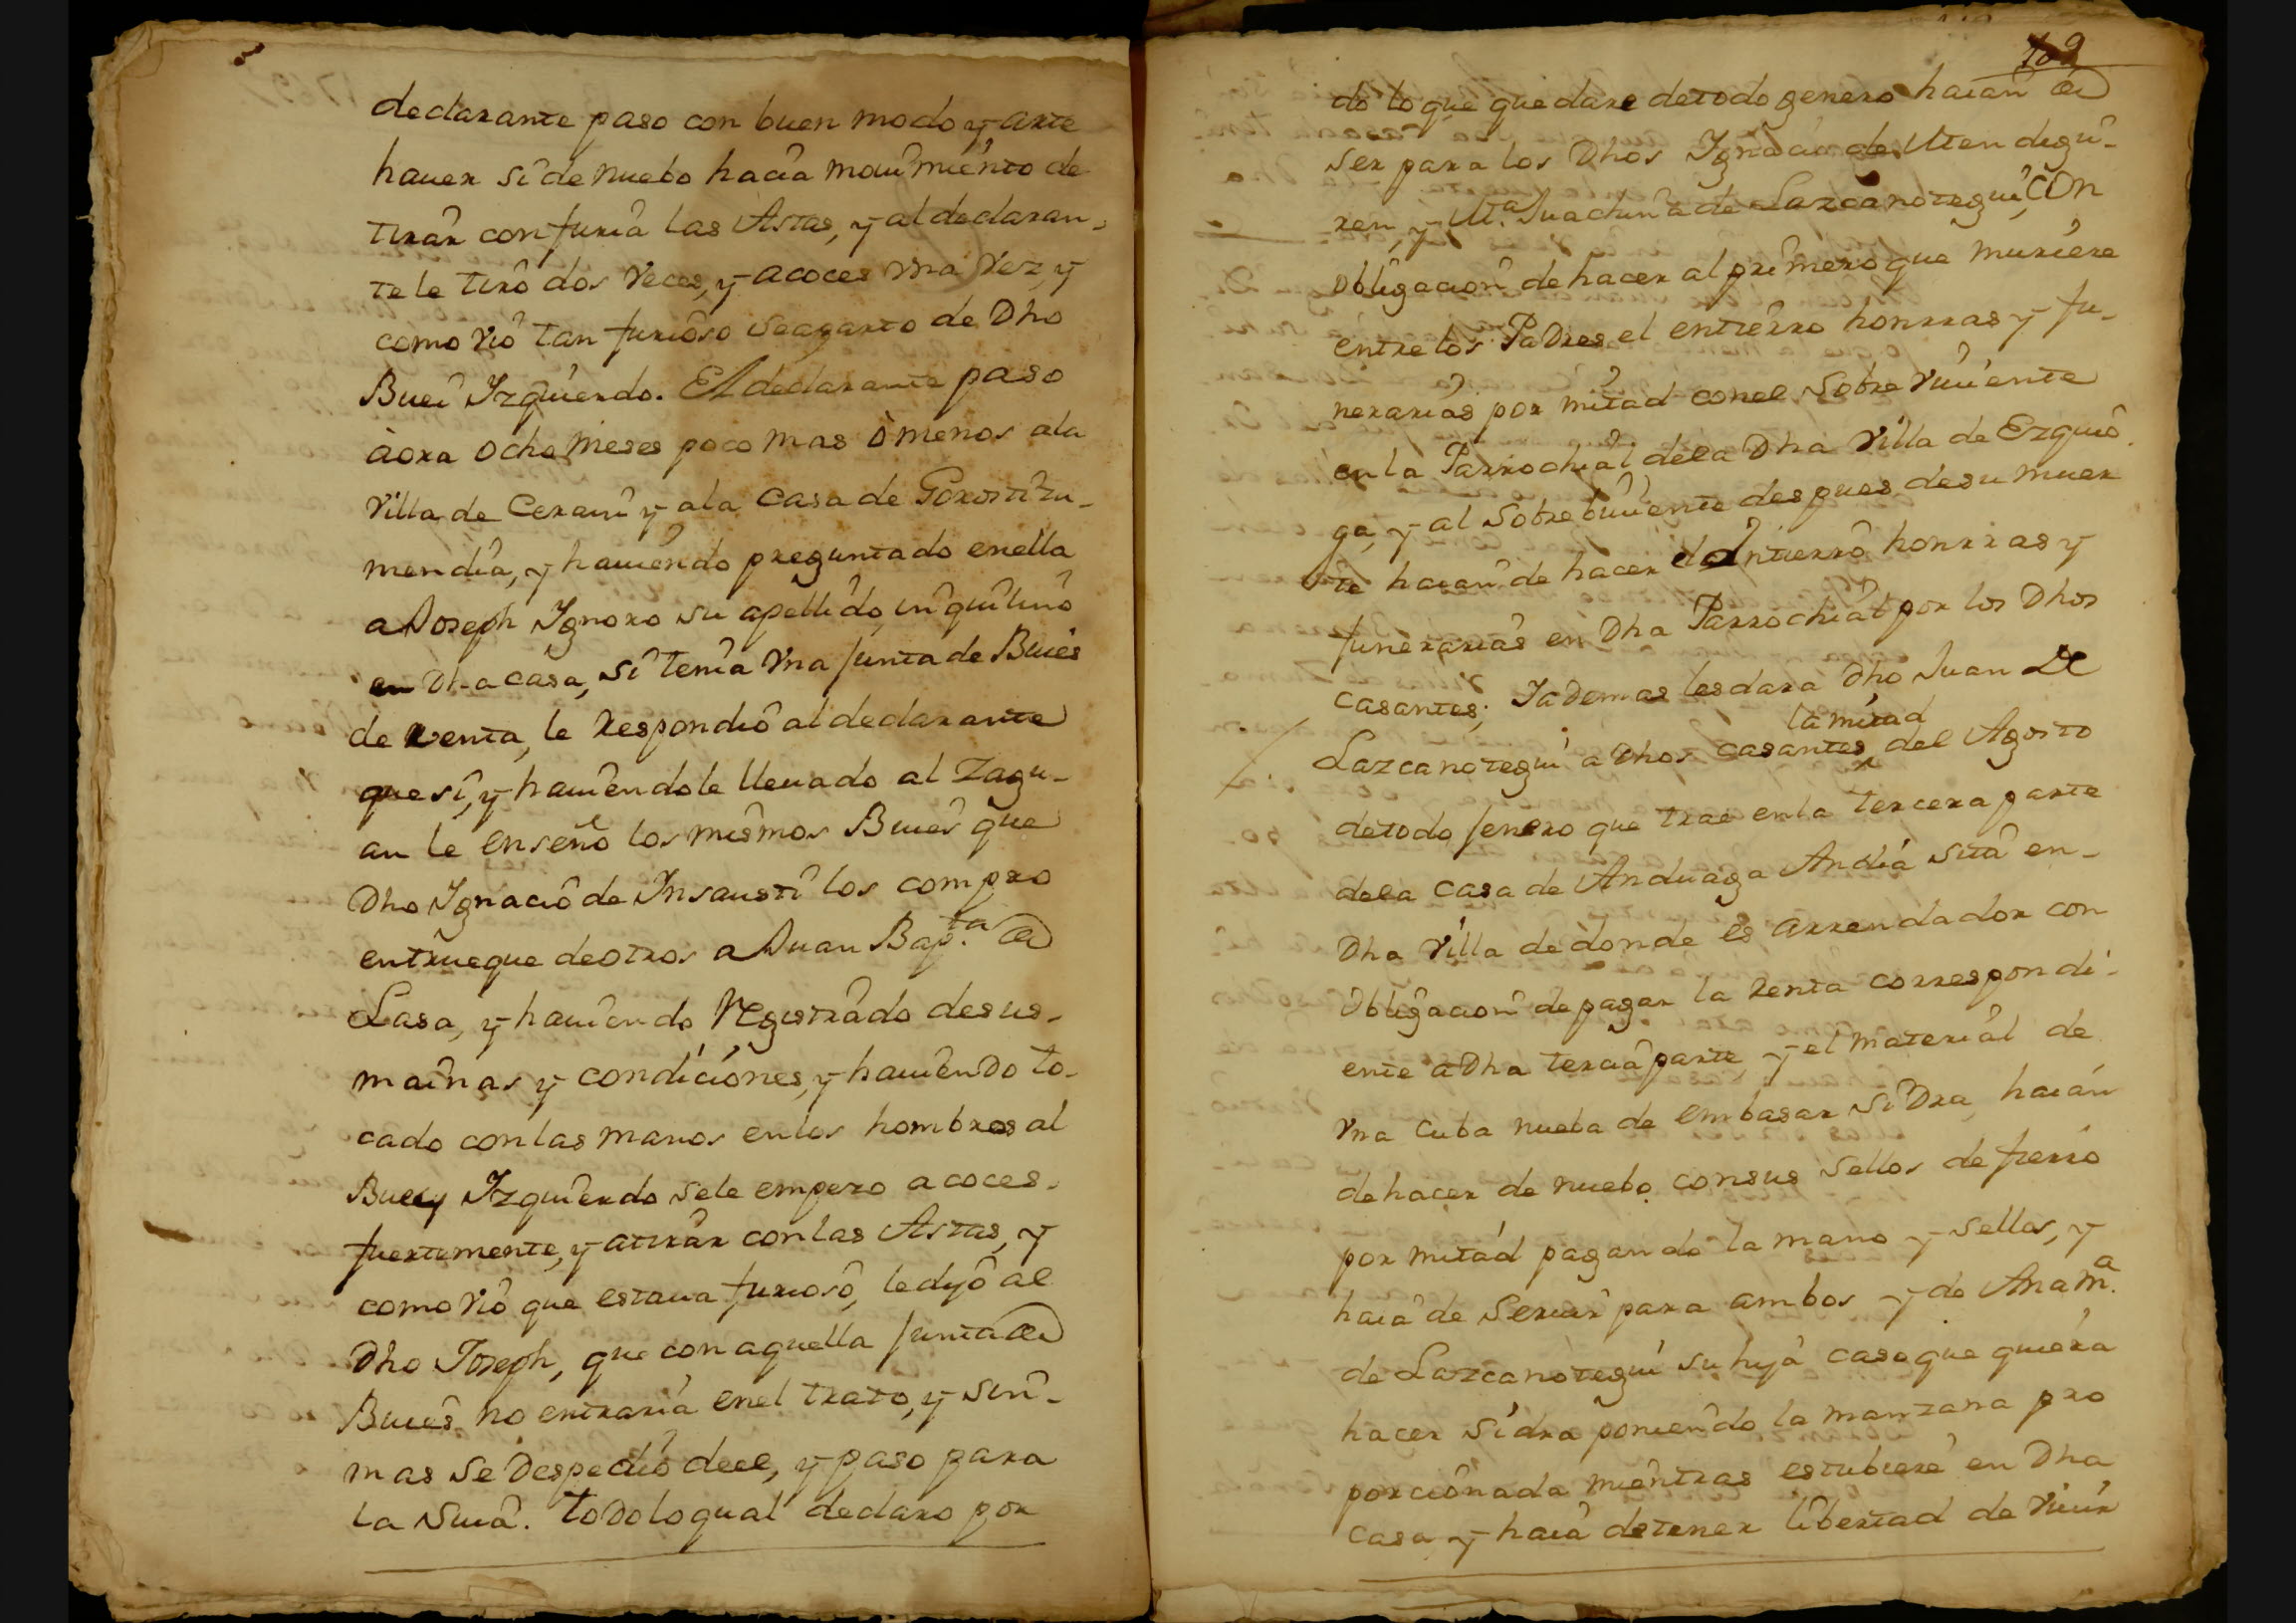 declarante paso con buen modo y arte
hauer si de nuebo hacia mouimiento de
tirar con furia las Astas, y al declaran-
te le tiró dos veces, y acoces vna vez, y
como vió tan furioso se aparto de Dho
Buei Izquierdo. El declarante paso
àora ocho meses poco mas ò menos ala
Villa de Cerain y ala casa de Gorostizu-
mendia, y hauiendo preguntado enella
a Joseph Ignoro su apellido, inquilino
en Dha casa, si tenia vna junta de Bueies
de venta, le respondió al declarante
que si, y hauiendole lleuado al Zagu-
an le enseño los mismos Bueies que
Dho Ignacio de Insausti los compro
entrueque deotros a Juan Bapta. de
Lasa, y hauiendo registrado de sus
mainas y condiciones, y hauiendo to-
cado conlas manos enlos hombros al
Buey Izquierdo sele empezo a coces
fuertemente, y atirar con las Astas, y
como vió que estaua furioso, le dijo al
Dho Joseph, que con aquella junta de
Bueies no entraria enel trato, y sin
mas se Despedió deel, y paso para
la suia. todo lo qual declaro por
102
do lo que quedare detodo genero haian de
ser para los Dhos Ignacio de Mendigu-
ren, y Ma. Juachina de Lazcanotegui, con
obligacion de hacer al primero que muriere
entre los Padres el entierro honrras y fu-
nerarias por mitad conel sobre viuiente
en la Parrochial dela Dha Villa de Ezquio-
ga, y al sobrebiuiente despues de su muer
te haian de hacer el Entierro honrras y
funerarias en Dha Parrochial por los Dhos
casantes; Iademas les dara Dho Juan de
la mitad
Lazcanotegui a Dhos casantes del Agosto
detodo jenero que trae en la tercera parte
dela casa de Anduaga Andia sita en
Dha Villa de donde es arrendador con
obligacion de pagar la renta correspondi-
ente a Dha tercia parte, y el material de
vna cuba nueba de embasar sidra haian
de hacer de nuebo con sus sellos de fierro
por mitad pagando la mano y sellos, y
haia de seruir para ambos y de Ana Ma.
de Lazcanotegui su hija caso que quiera
hacer sidra poniendo la manzana pro
porcionada mientras estubiere en Dha
casa y haia de tener libertad de viuir